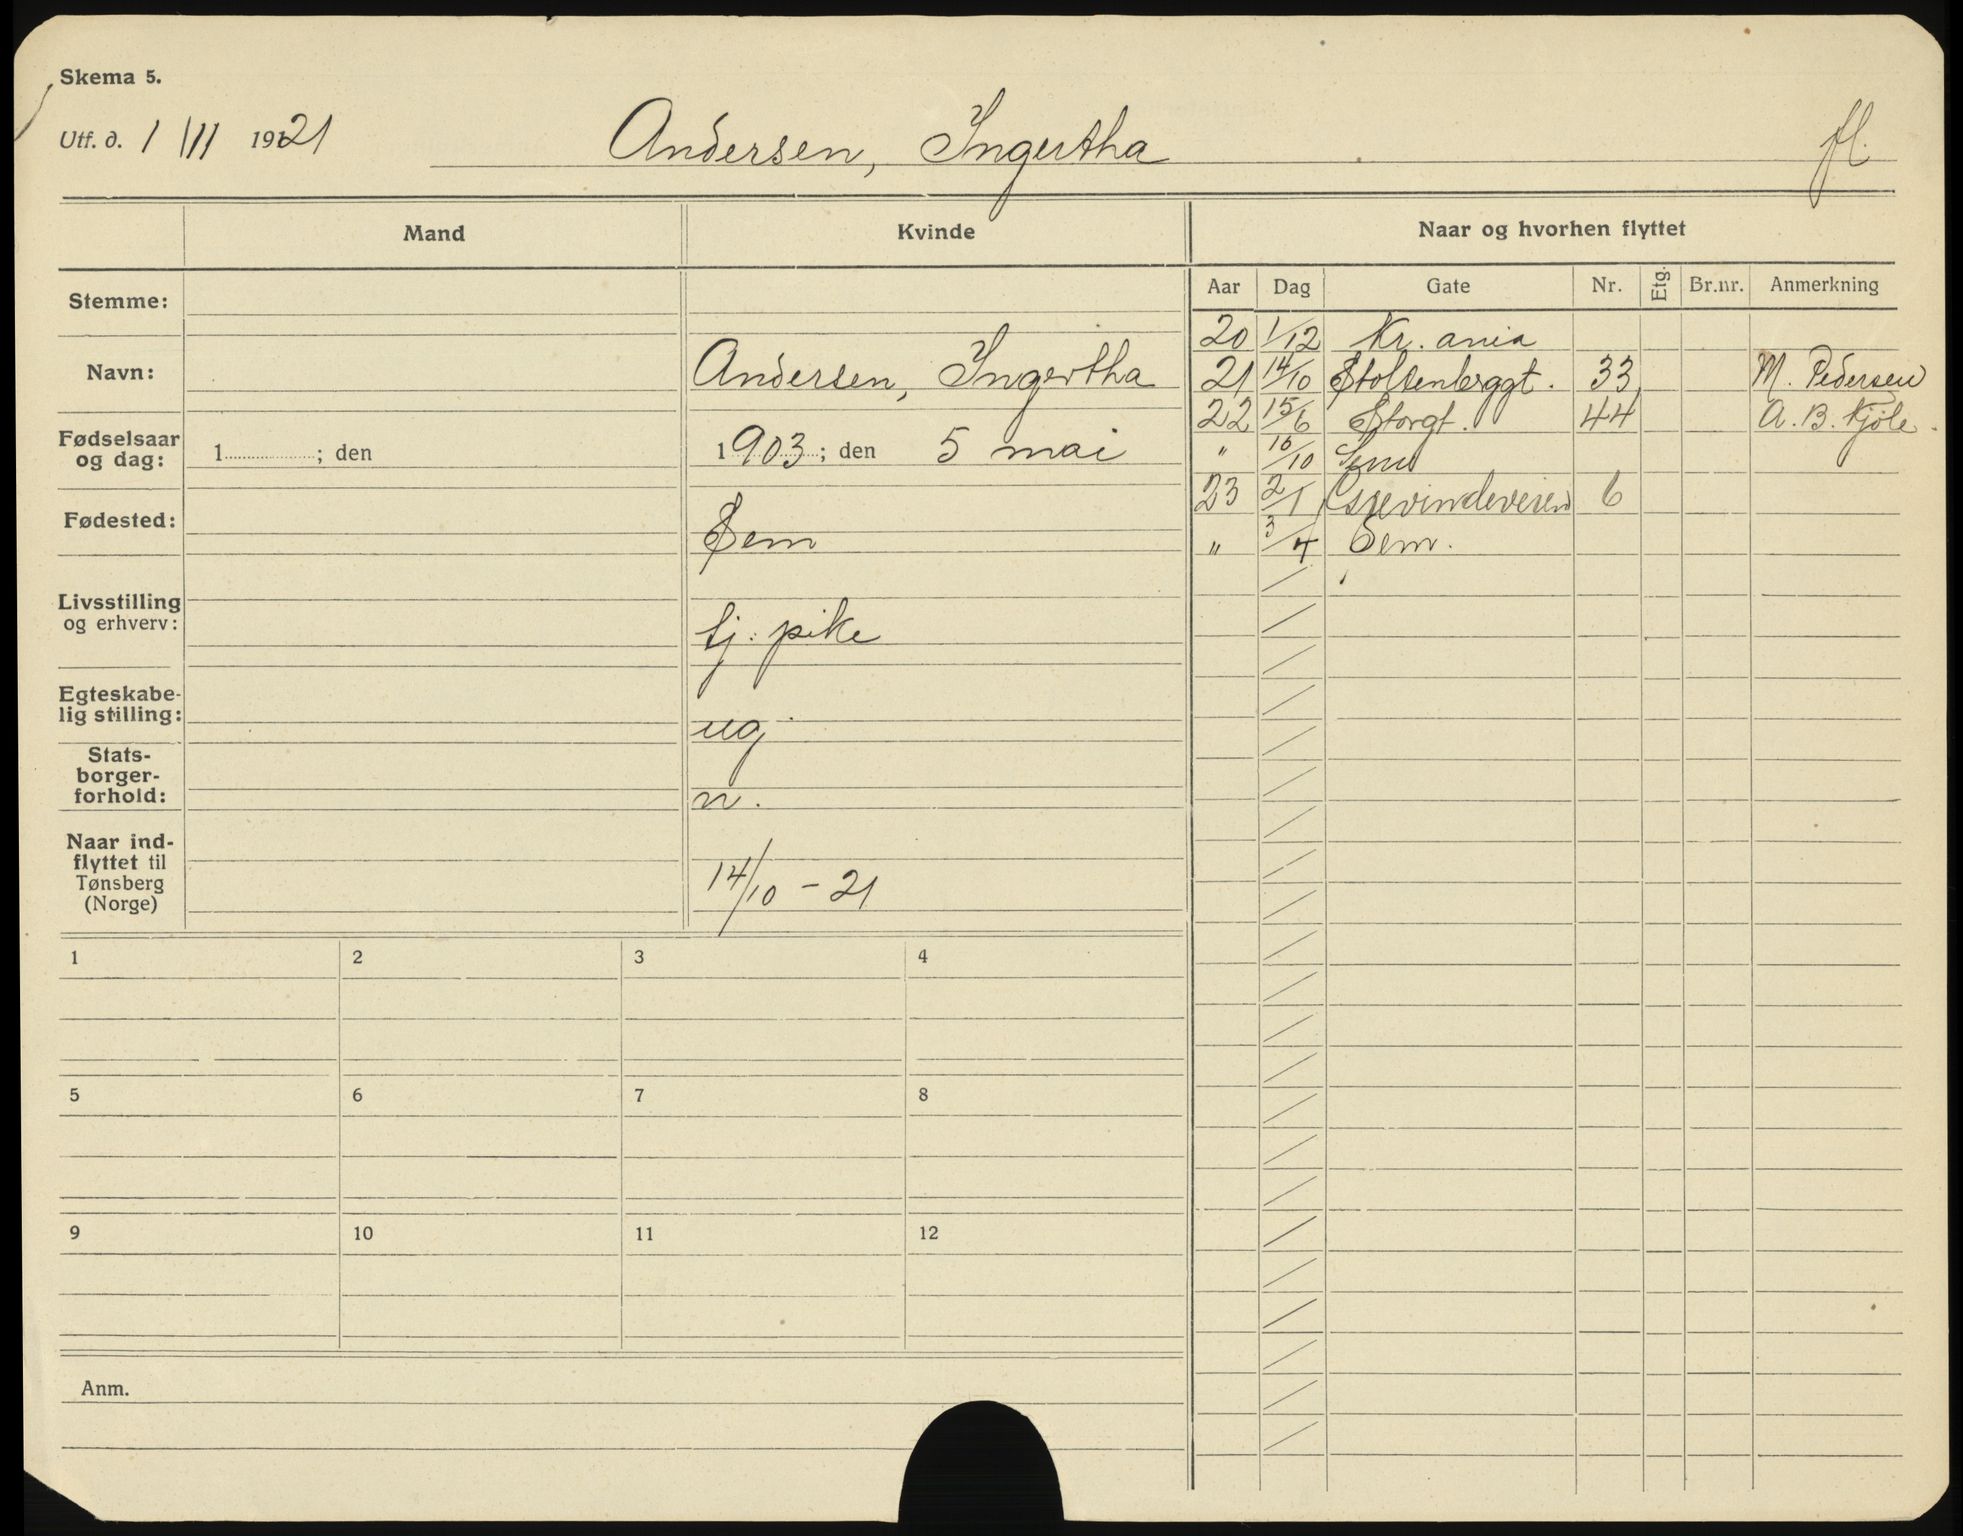 Skema 5.
Utf. d. 1 / 11 1921 Andersen, Ingertha fl.
Mand Kvinde Naar og hvorhen flyttet
Aar Dag Gate Nr. Etg. Br.nr. Anmerkning
Stemme:
Navn: Andersen, Ingertha
Fødselsaar og dag: 1 ; den 1903 ; den 5 mai
Fødested: Sem
Livsstilling og erhverv: tj. pike
Egteskabe-
lig stilling: ug.
Stats-
borger-
forhold: n.
Naar ind-
flyttet til
Tønsberg
(Norge) 14/10 - 21
20 1/12 Kr. ania
21 14/10 Stoltenberggt. 33 M. Pedersen
22 15/6 Storgt. 44 A. B. Kjøle.
" 10/10 Sem
23 2/1 Grevindeveien 6
" 3/4 Sem.
1 2 3 4
5 6 7 8
9 10 11 12
Anm.